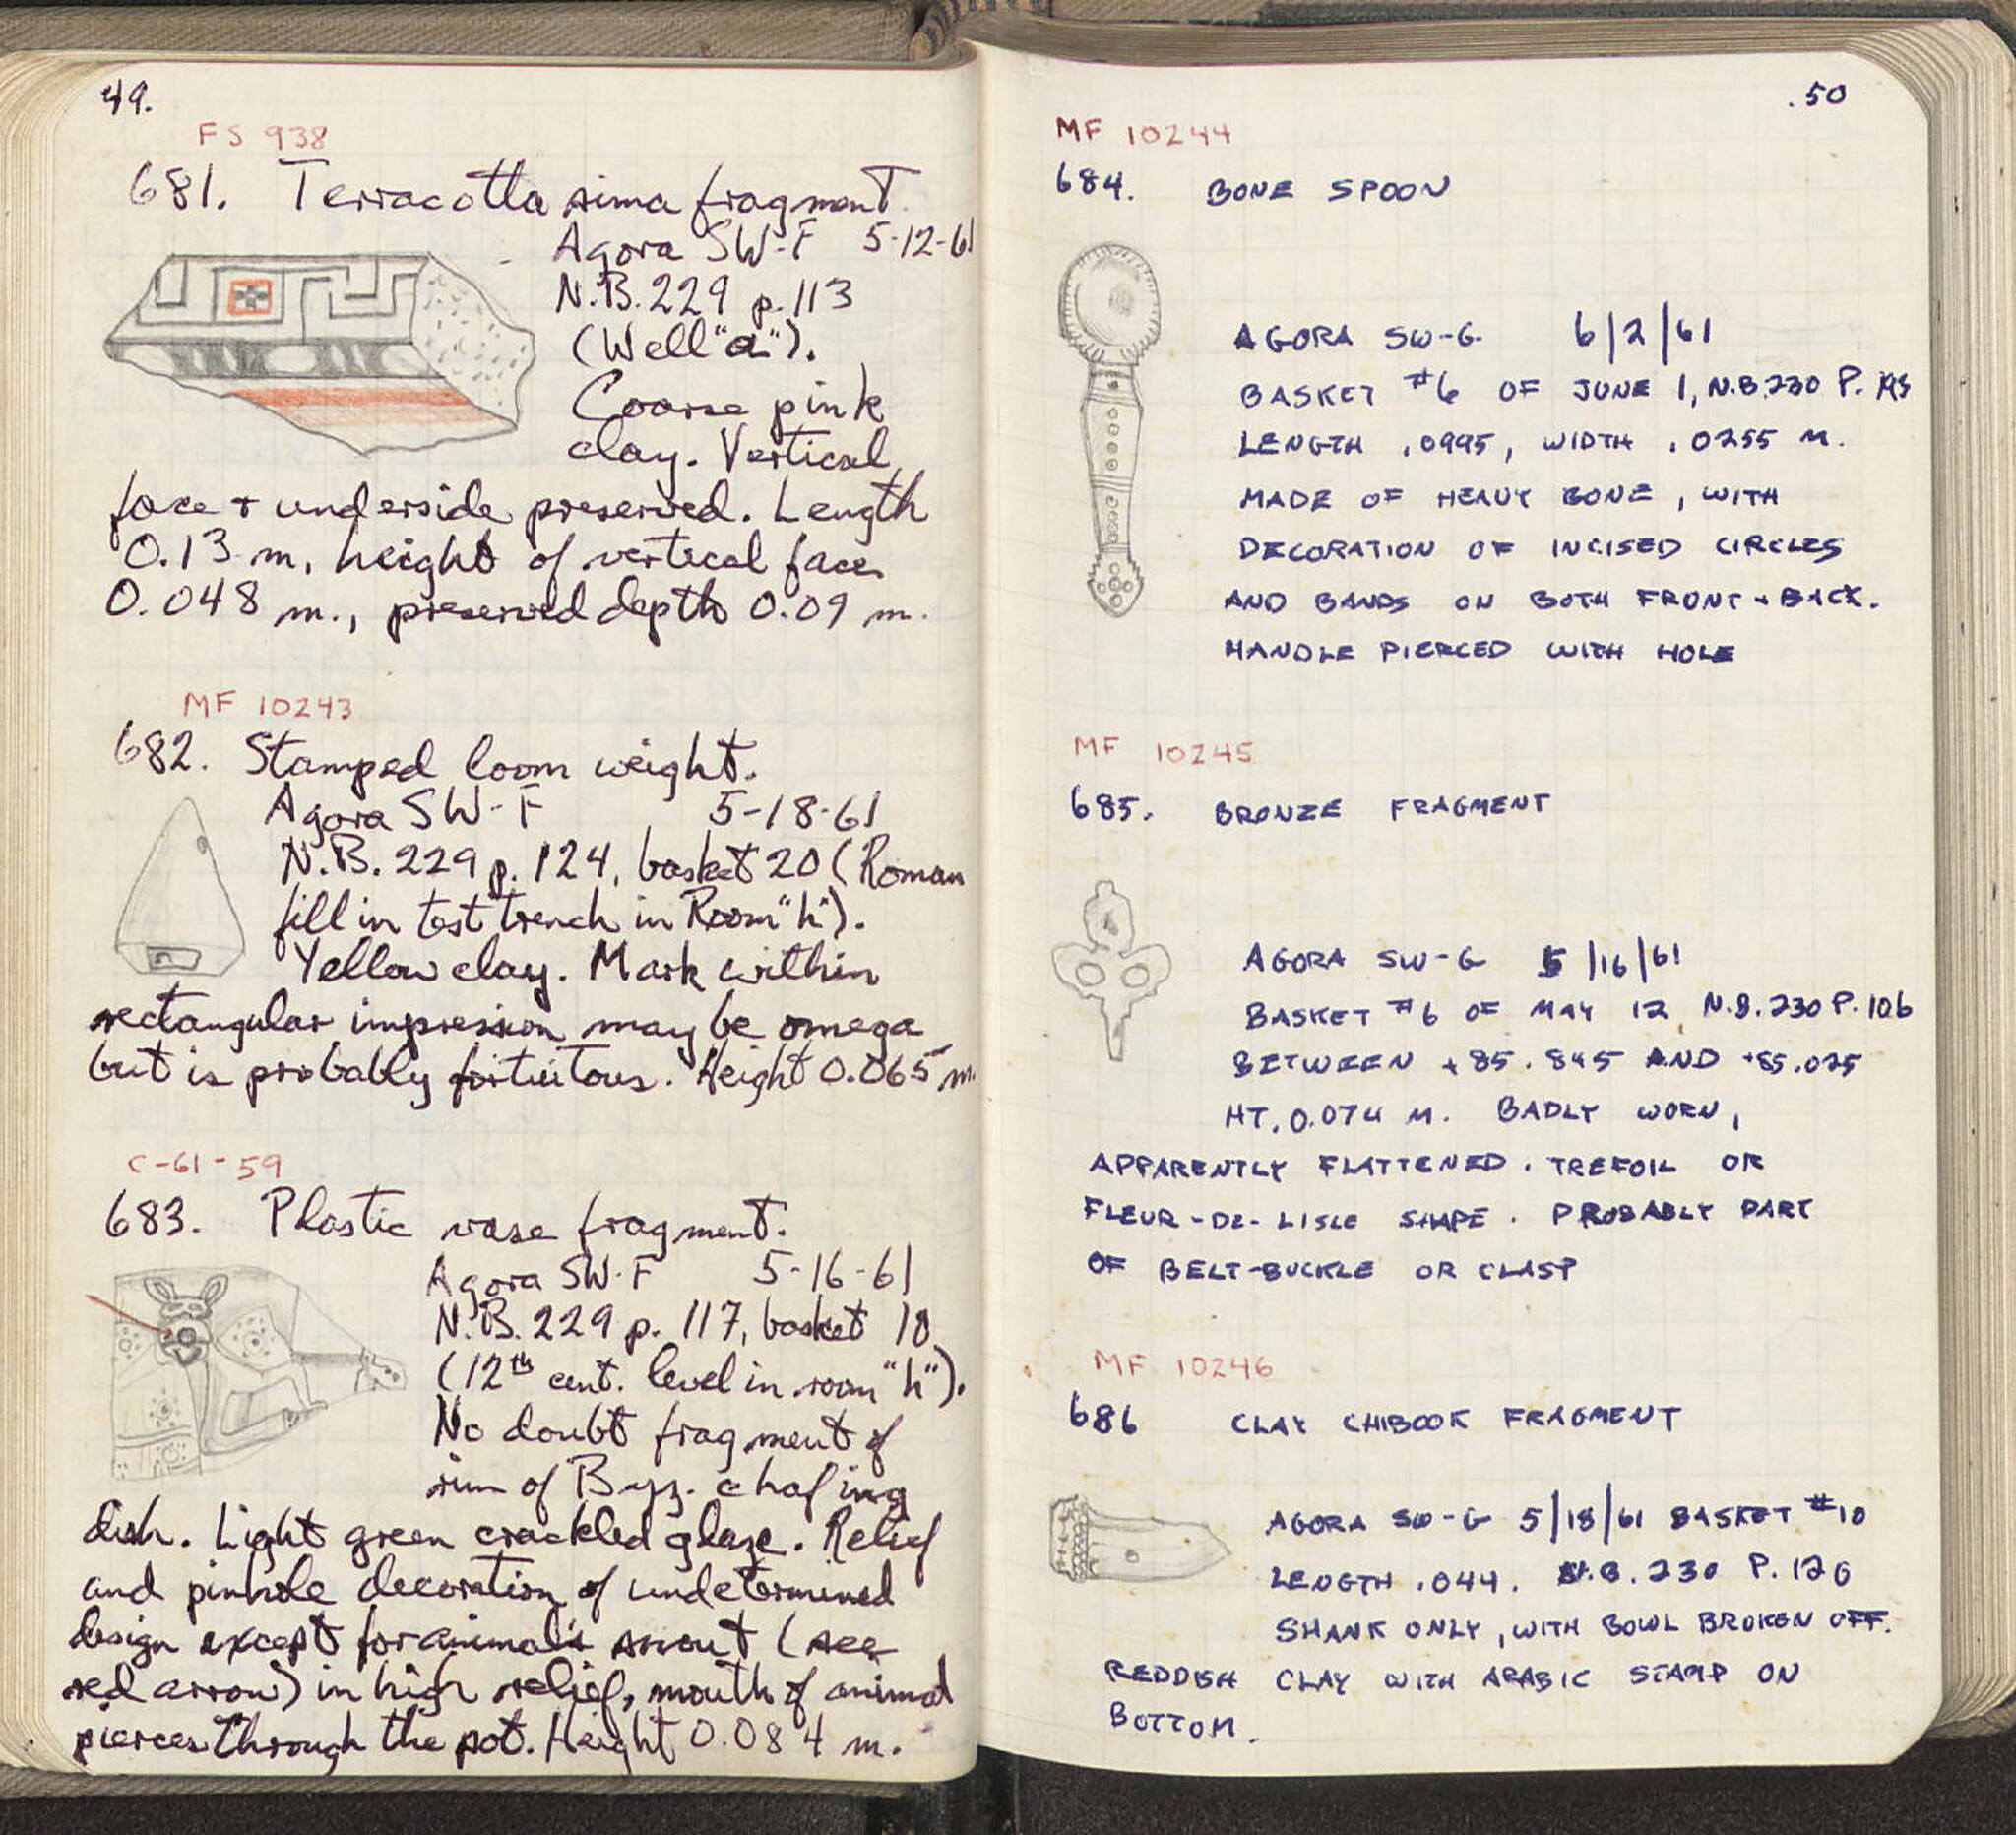 49.
FS 938
681. Terracotta sima fragment.
Agora SW-F 5-12-61
N.B. 229 p. 113
(Well "a").
Coarse pink
clay. Vertical
face + underside preserved. Length
0.13 m, height of vertical face
0.048 m., preserved depth 0.09 m.
MF 10243
682. Stamped loom weight.
Agora SW-F 5-18-61
N.B. 229 p. 124, basket 20 (Roman
fill in test trench in Room "h").
Yellow clay. Mark within
rectangular impression may be omega
but is probably fortuitous. Height 0.065 m.
C-61-59
683. Plastic vase fragment.
Agora SW-F 5-16-61
N.B. 229 p. 117, basket 18
(12th cent. level in room "h").
No doubt fragment of
rim of Byz. chafing
dish. Light green crackled glaze. Relief
and pinhole decoration of undetermined
design except for animal's snout (see
red arrow) in high relief, mouth of animal
pierces through the pot. Height 0.084 m.
.50
MF 10244
684. BONE SPOON
AGORA SW-G. 6/2/61
BASKET #6 OF JUNE 1, N.B.230 P.
LENGTH .0995, WIDTH .0255 M.
MADE OF HEAVY BONE, WITH
DECORATION OF INCISED CIRCLES
AND BANDS ON BOTH FRONT + BACK.
HANDLE PIERCED WITH HOLE
MF 10245
685. BRONZE FRAGMENT
AGORA SW-G 5/16/61
BASKET #6 OF MAY 12 N.B.230 P. 106
BETWEEN +85.845 AND +85.025
HT. 0.074 M. BADLY WORN,
APPARENTLY FLATTENED. TREFOIL OR
FLEUR-DE-LISLE SHAPE. PROBABLY PART
OF BELT-BUCKLE OR CLASP
MF 10246
686 CLAY CHIBOOK FRAGMENT
AGORA SW-G 5/18/61 BASKET #10
LENGTH .044. N.B. 230 P. 120
SHANK ONLY, WITH BOWL BROKEN OFF.
REDDISH CLAY WITH ARABIC STAMP ON
BOTTOM.